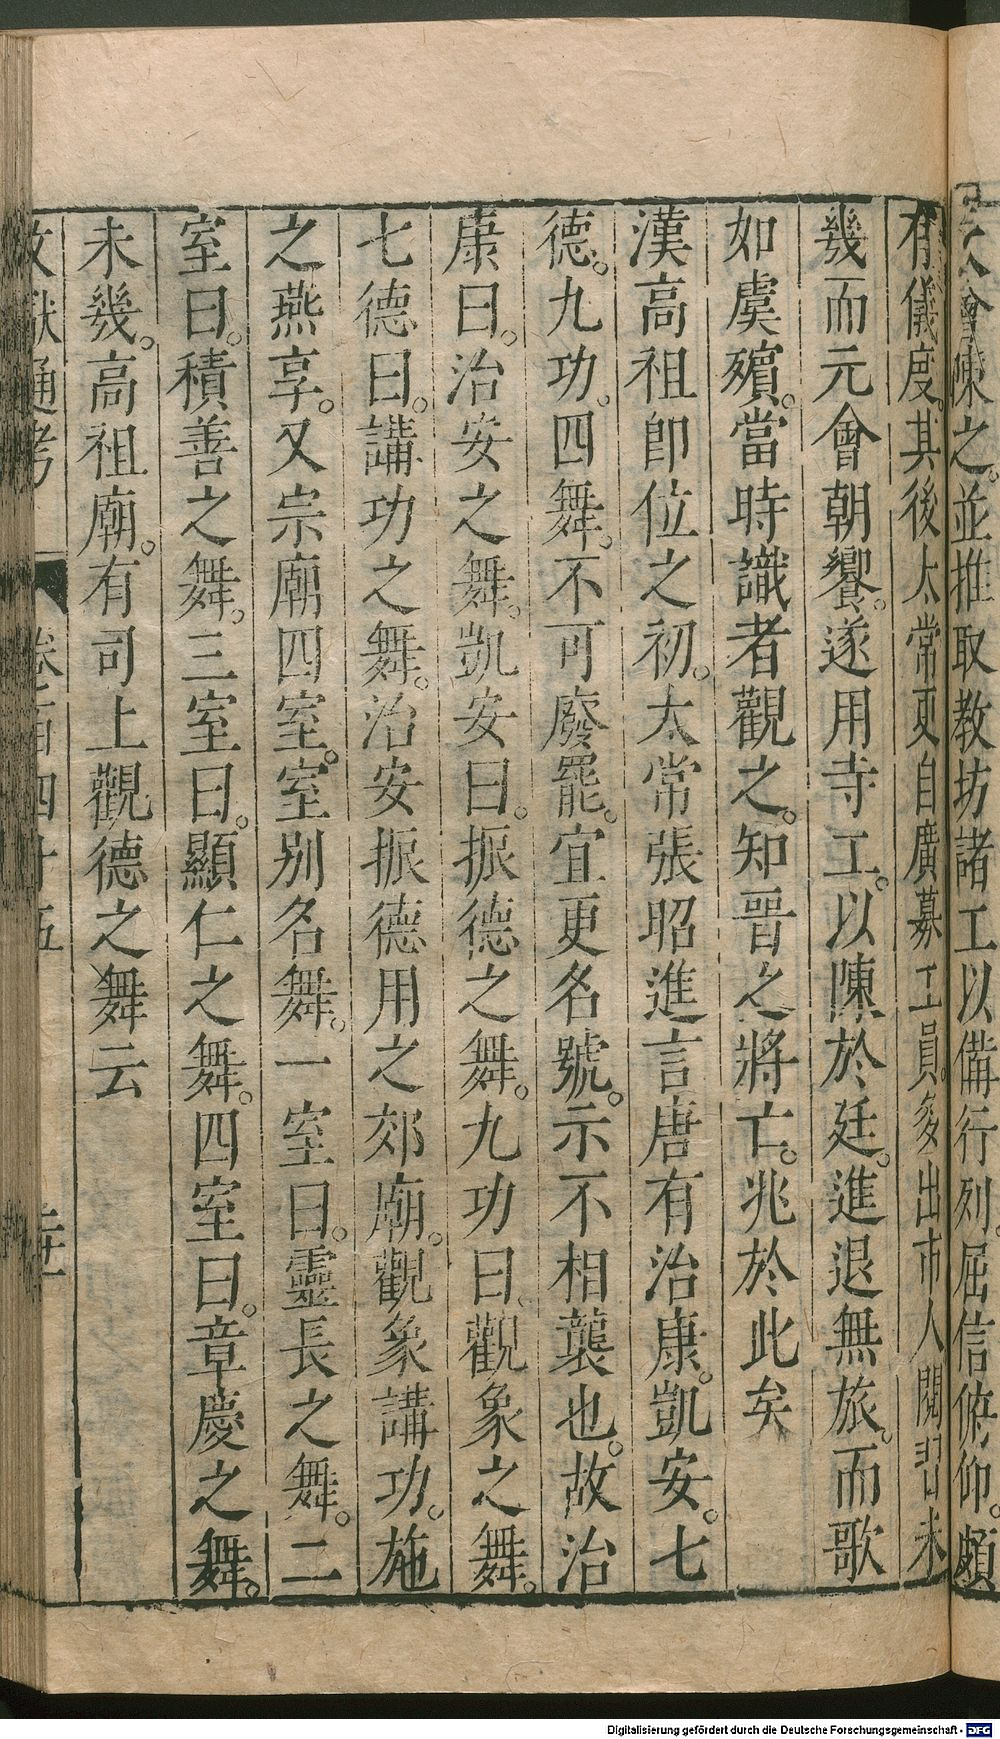 大會陳之。並推取教坊諸工以備行列。屈信俯仰。頗
有儀度。其後太常更自廣募工員。多出市人閱習未
幾而元會朝饗。遂用寺工。以陳於廷。進退無旅。而歌
如虞殯。當時識者觀之。知晉之將亡。兆於此矣
漢高祖即位之初。太常張昭進言唐有治康。凱安。七
德。九功。四舞。不可廢罷。宜更名號。示不相襲也。故治
康曰。治安之舞。凱安曰。振德之舞。九功曰。觀象之舞。
七德曰。講功之舞。治安振德用之郊廟。觀象講功。施
之燕享。又宗廟四室。室別名舞。一室曰。靈長之舞。二
室曰。積善之舞。三室曰。顯仁之舞。四室曰。章慶之舞。
未幾。高祖廟。有司上觀德之舞云
文獻通考 卷一百四十五 二十
Digitalisierung gefördert durch die Deutsche Forschungsgemeinschaft - DFG